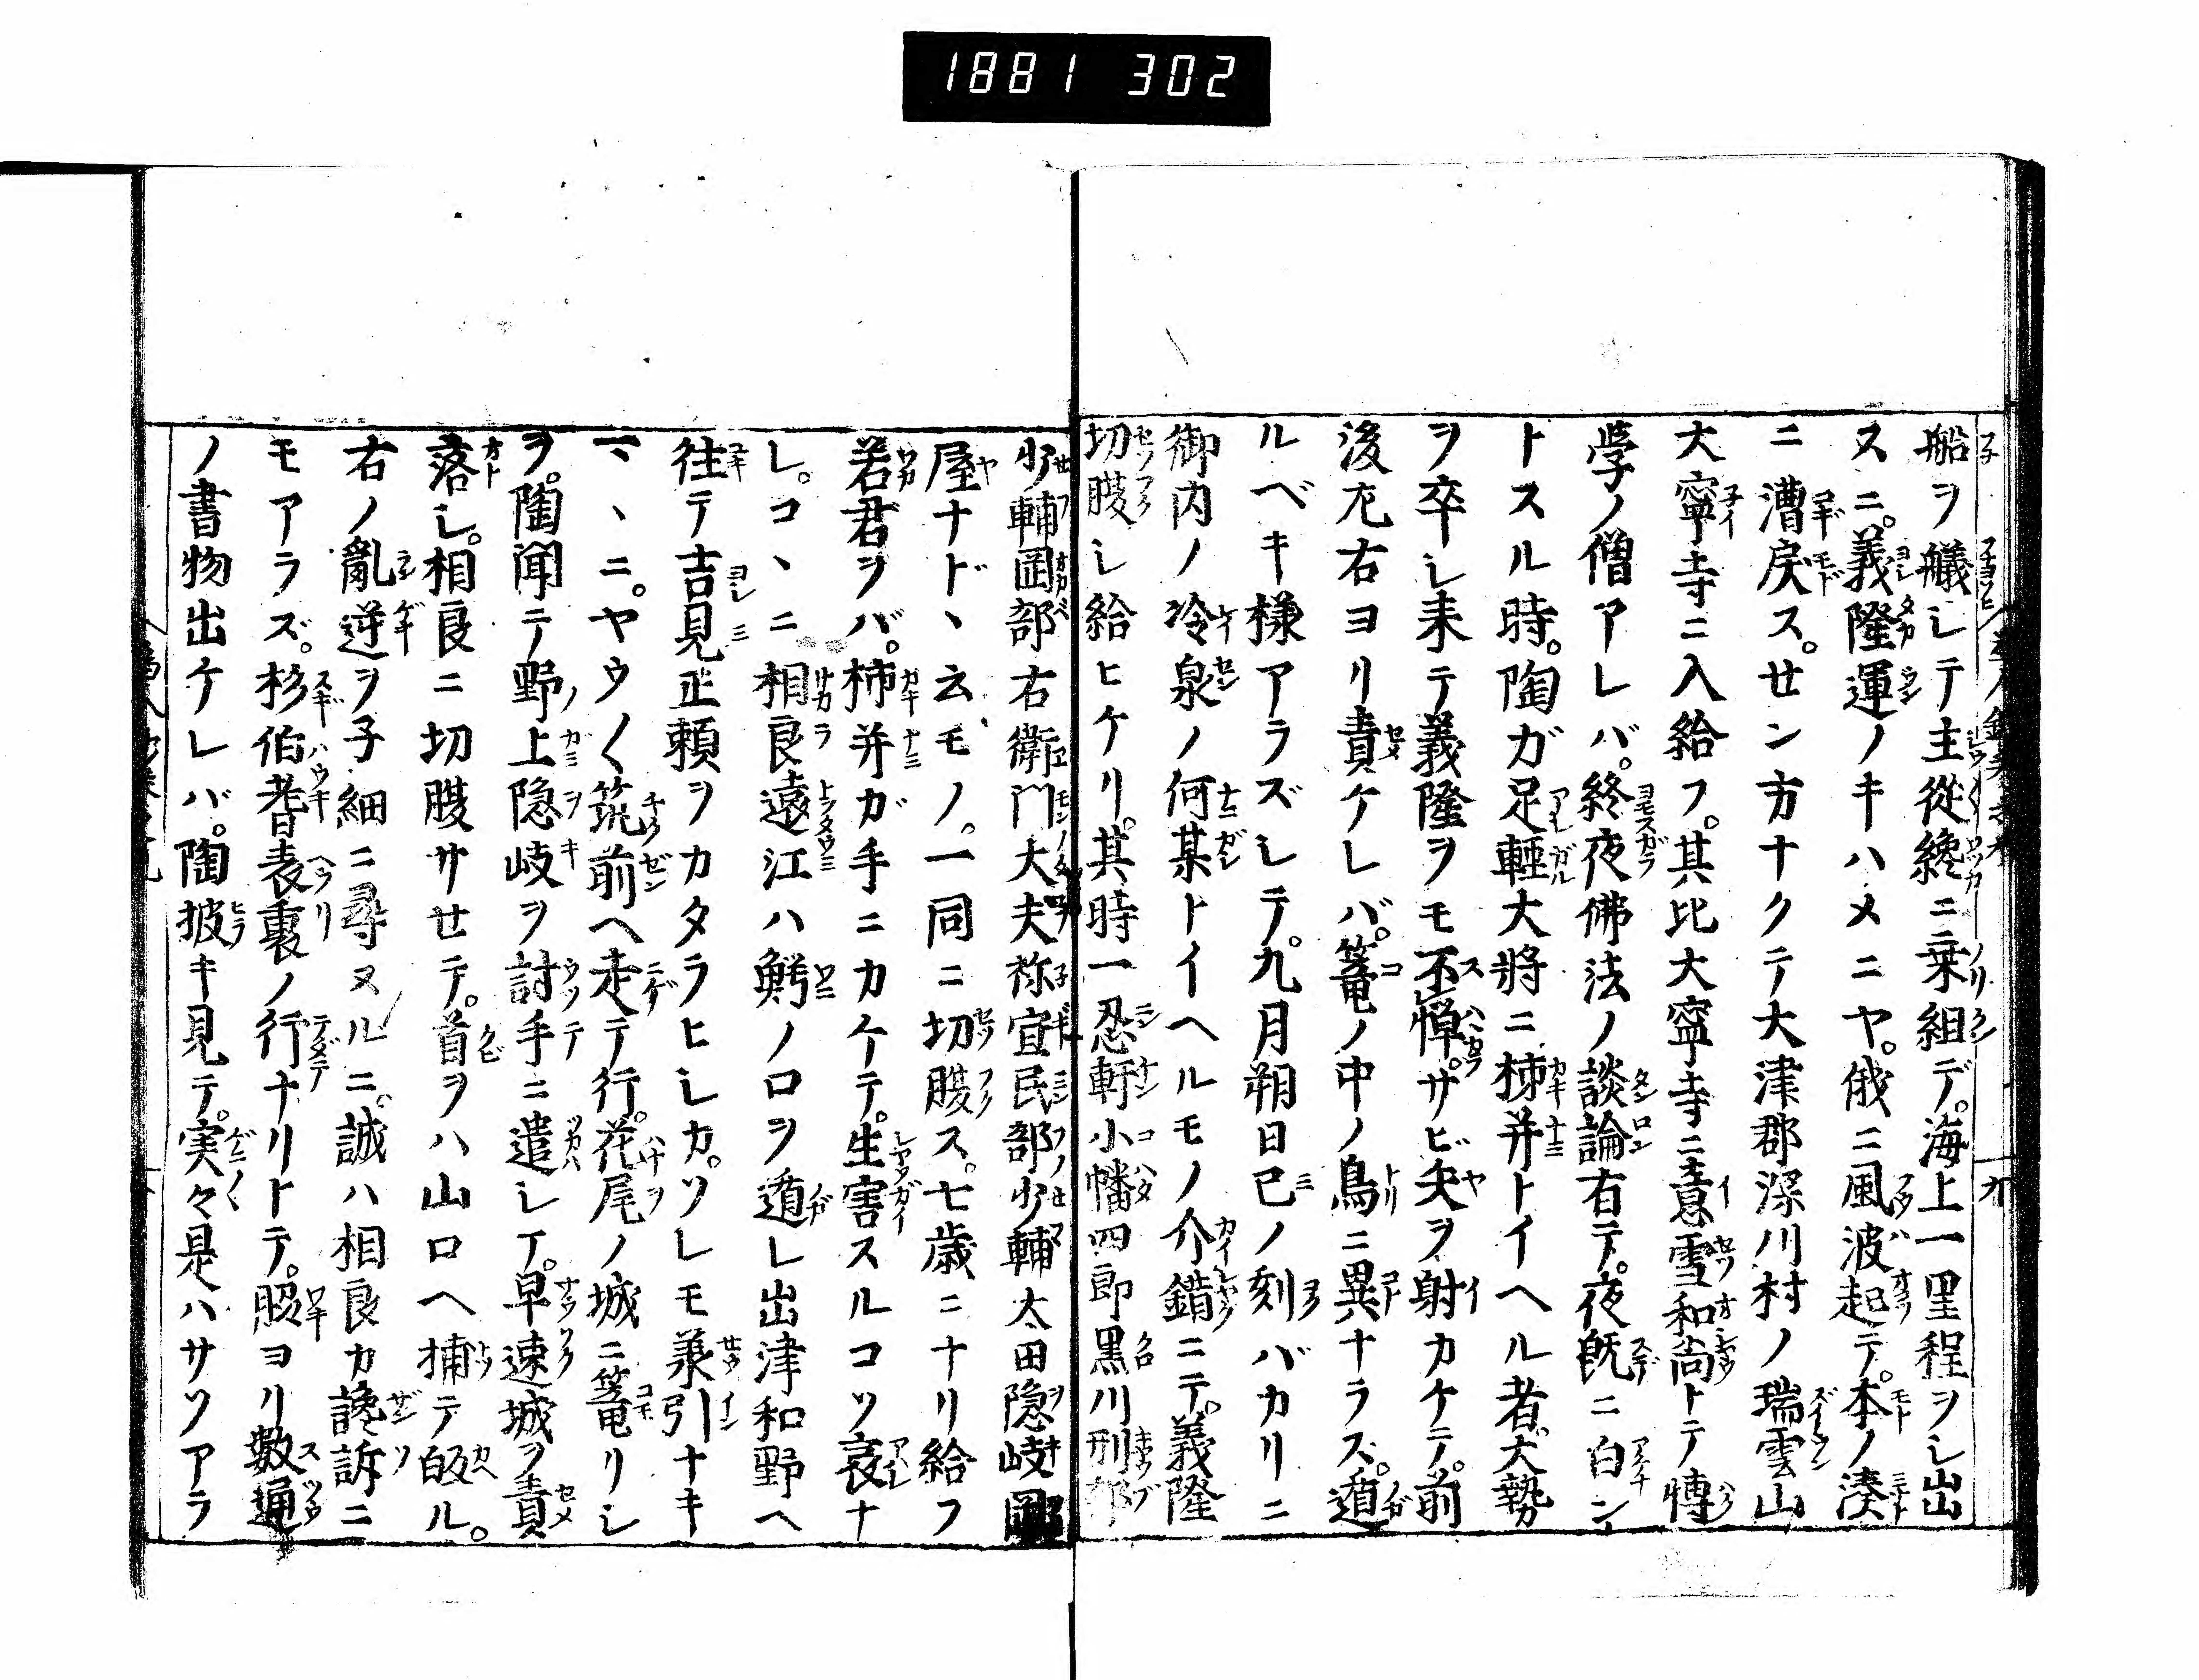 1881 302
船ヲ艤シテ主從纔ニ乗組デ。海上一里程ヲシ出
スニ。義隆運ノキハメニヤ。俄ニ風波起テ。本ノ湊
ニ漕戻ス。せン方ナクテ大津郡深川村ノ瑞雲山
大寧寺ニ入給フ。其比大寧寺ニ意雪和尚トテ博
学ノ僧アレバ。終夜佛法ノ談論有テ。夜既ニ白ン
トスル時。陶ガ足輕大將ニ柿并トイヘル者大勢
ヲ卒シ来テ義隆ヲモ不憚。サビ矢ヲ射カケテ。前
後左右ヨリ責ケレバ。篭ノ中ノ鳥ニ異ナラズ。遁
ルベキ様アラズシテ。九月朔日巳ノ刻バカリニ
御内ノ冷泉ノ何某トイヘルモノノ介錯ニテ。義隆
切腹シ給ヒケリ。其時一忍軒小幡四郎黒川刑部
少輔岡部右衛門大夫祢宜民部少輔太田隠岐
屋ナド、云モノ。一同ニ切腹ス。七歳ニナリ給フ
若君ヲバ。柿并ガ手ニカケテ。生害スルコソ哀ナ
レ。コヽニ相良遠江ハ鰐ノ口ヲ遁レ出津和野ヘ
往テ吉見正頼ヲカタラヒシカ。ソレモ兼引ナキ
ヽニ。ヤウ〱筑前ヘ走テ行。花尾ノ城ニ篭リシ
ヲ。陶聞テ野上隠岐ヲ討手ニ遣シテ。早速城ヲ責
落シ。相良ニ切腹サせテ。首ヲハ山口ヘ捕テ皈ル。
右ノ亂逆ヲ子細ニ尋ヌルニ。誠ハ相良カ讒訴ニ
モアラズ。杉伯耆表裏ノ行ナリトテ。ヨリ數通
ノ書物出ケレバ。陶披キ見テ。実々是ハサソアラ